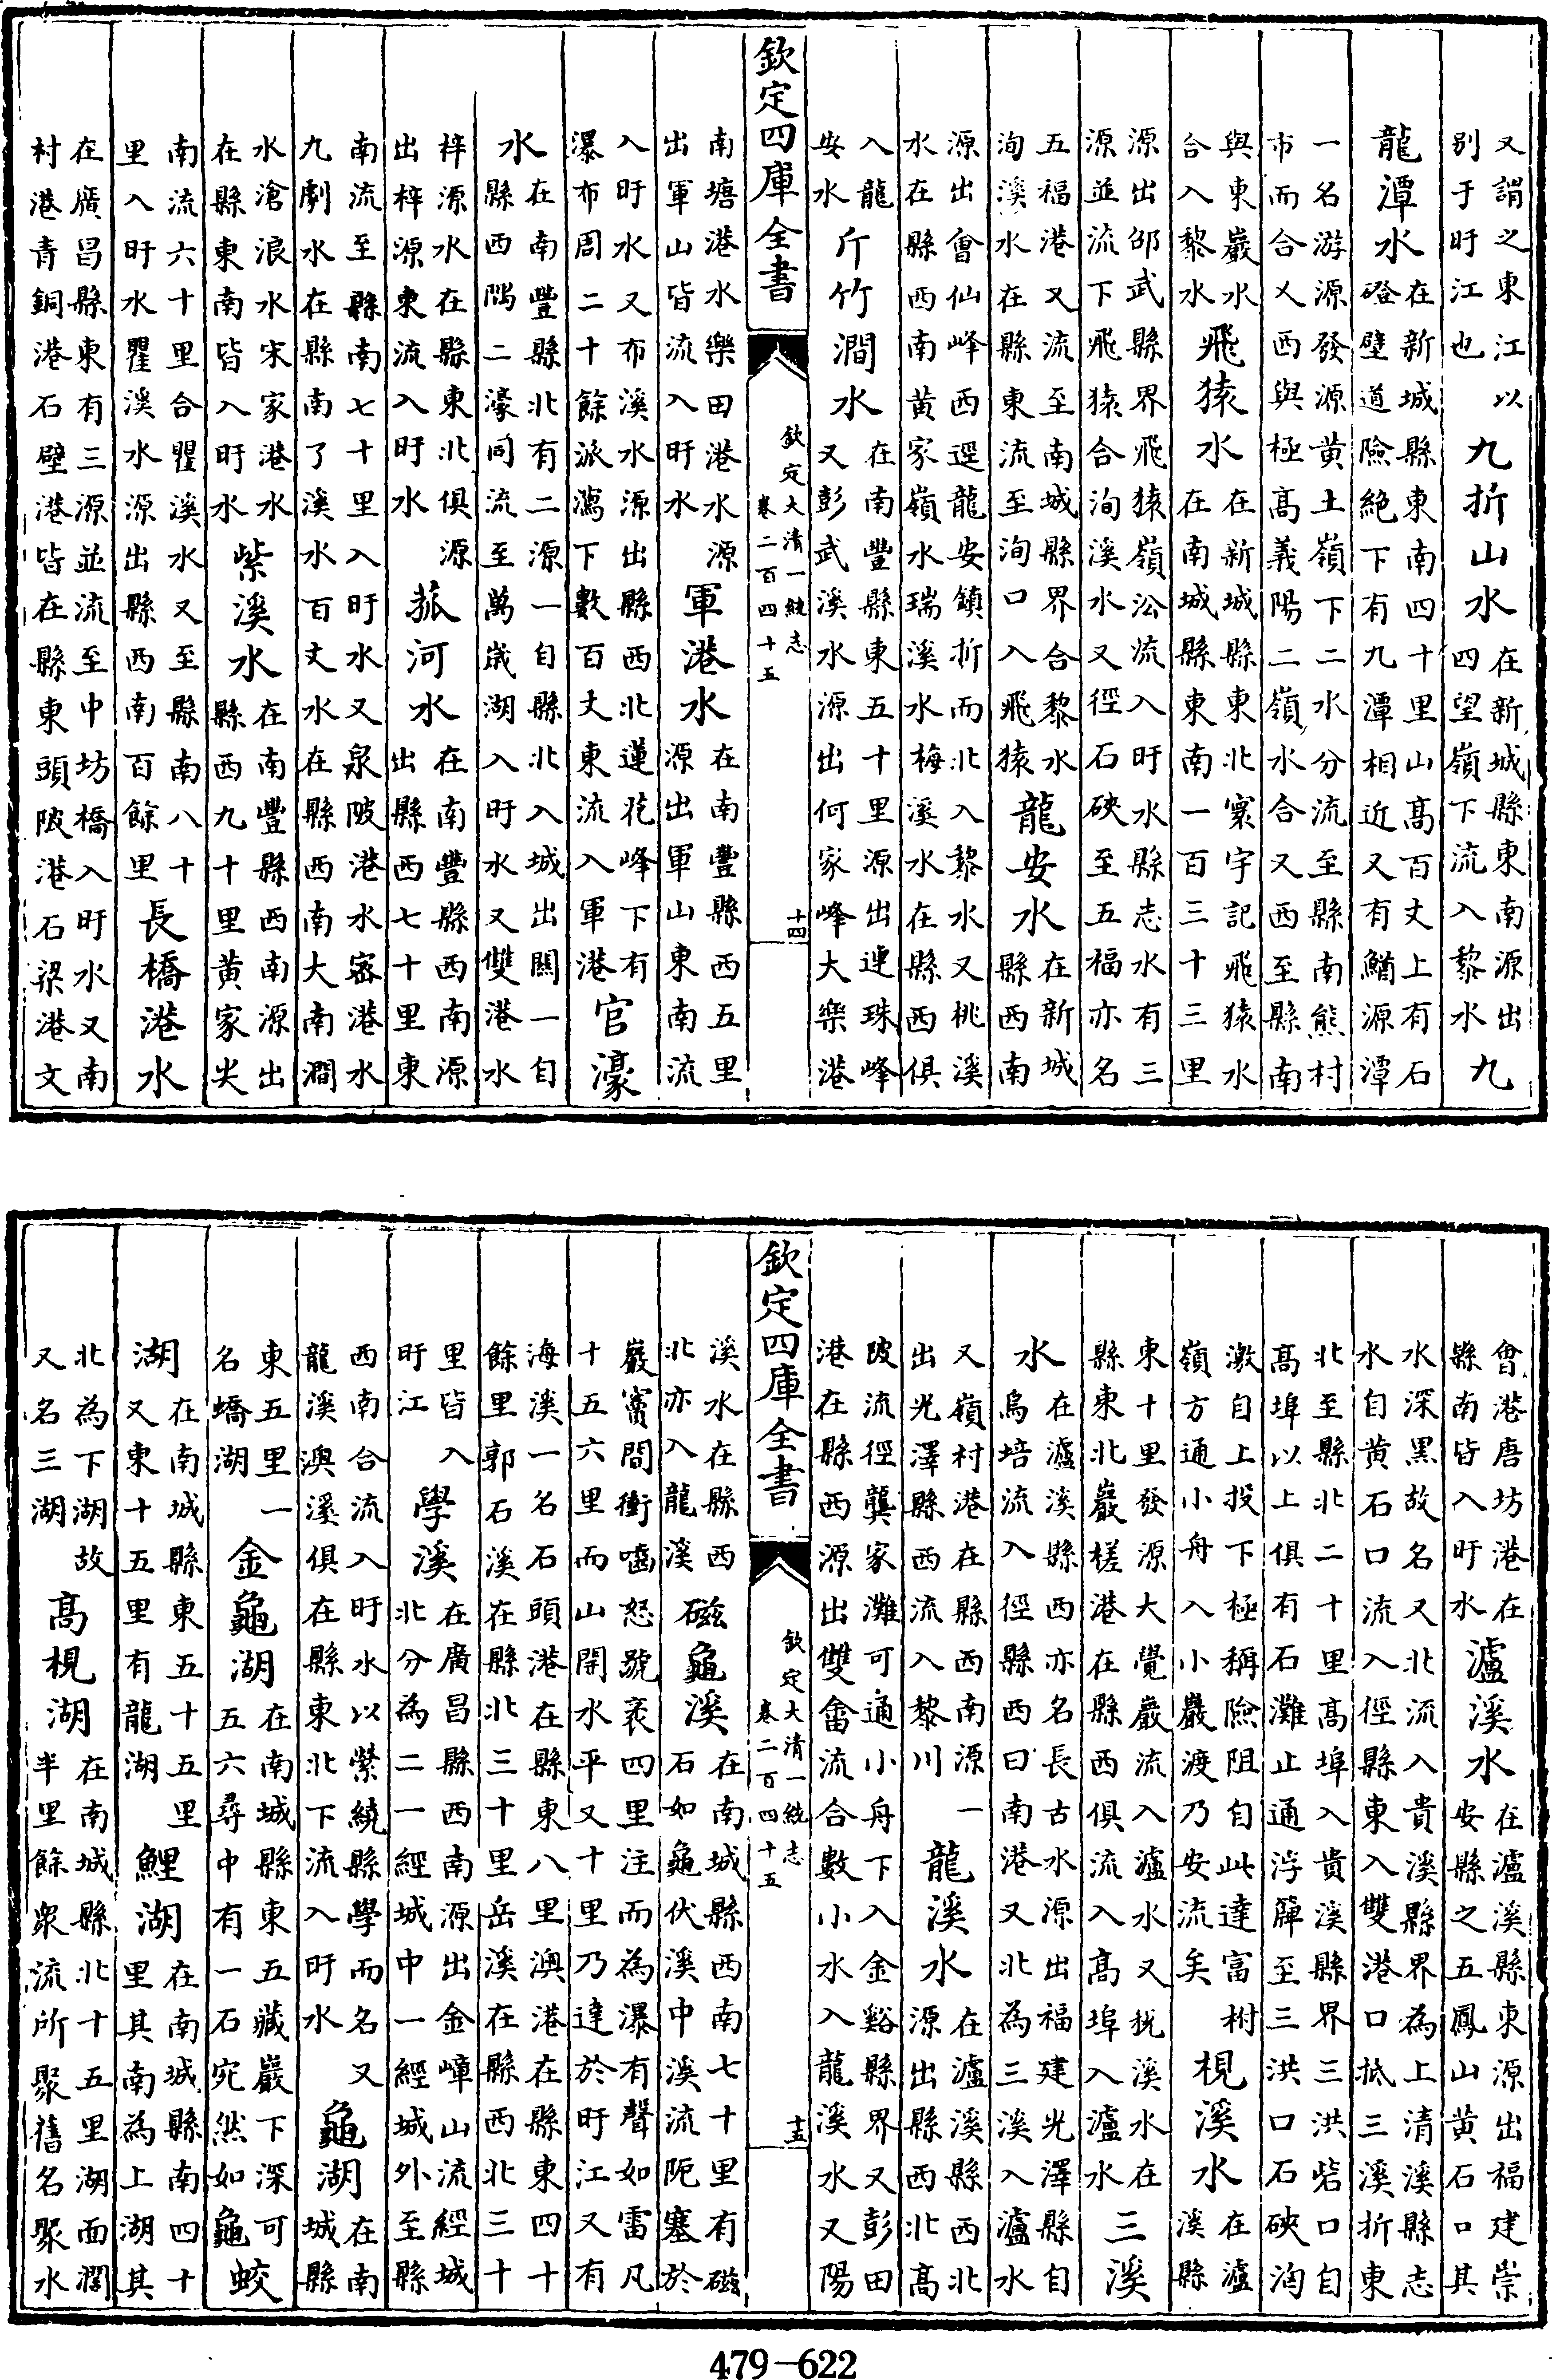 又謂之東江以
别于旴江也
九折山水
在新城縣東南源出
四望嶺下流入黎水
九
龍潭水
在新城縣東南四十里山髙百丈上有石
磴壁道險絶下有九潭相近又有鰌源潭
一名游源發源黄土嶺下二水分流至縣南熊村
市而合乂西與極髙義陽二嶺水合又西至縣南
與東巖水
合入黎水
飛猿水
在新城縣東北寰宇記飛猿水
在南城縣東南一百三十三里
源出邵武縣界飛猿嶺㳂流入旴水縣志水有三
源並流下飛猿合洵溪水又徑石硤至五福亦名
五福港又流至南城縣界合黎水
洵溪水在縣東流至洵口入飛猿
龍安水
在新城
縣西南
源出㑹仙峰西逕龍安鎮折而北入黎水又桃溪
水在縣西南黄家嶺水瑞溪水梅溪水在縣西俱
入龍
安水
斤竹澗水
在南豐縣東五十里源出連珠峰
又彭武溪水源出何家峰大樂港
欽定四庫全書
欽定大清一統志
卷二百四十五
十四
南塘港水樂田港水源
出軍山皆流入旴水
軍港水
在南豐縣西五里
源出軍山東南流
入旴水又布溪水源出縣西北蓮花峰下有
瀑布周二十餘派瀉下數百丈東流入軍港
官濠
水
在南豐縣北有二源一自縣北入城出闗一自
縣西隅二濠同流至萬歳湖入旴水又雙港水
梓源水在縣東北俱源
出梓源東流入旴水
菰河水
在南豐縣西南源
出縣西七十里東
南流至縣南七十里入旴水又泉陂港水宻港水
九劇水在縣南了溪水百丈水在縣西南大南澗
水滄浪水宋家港水
在縣東南皆入旴水
紫溪水
在南豐縣西南源出
縣西九十里黄家尖
南流六十里合瞿溪水又至縣南八十
里入旴水瞿溪水源出縣西南百餘里
長橋港水
在廣昌縣東有三源並流至中坊橋入旴水又南
村港青銅港石壁港皆在縣東頭陂港石梁港文
㑹港唐坊港在
縣南皆入旴水
瀘溪水
在瀘溪縣東源出福建崇
安縣之五鳳山黄石口其
水深黑故名又北流入貴溪縣界為上清溪縣志
水自黄石口流入徑縣東入雙港口抵三溪折東
北至縣北二十里髙埠入貴溪縣界三洪砦口自
髙埠以上俱有石灘止通浮簰至三洪口石硤洶
激自上投下極稱險阻自此達富
嶺方通小舟入小巖渡乃安流矣
枧溪水
在瀘
溪縣
東十里發源大覺巖流入瀘水又枕溪水在
縣東北巖槎港在縣西俱流入髙埠入瀘水
三溪
水
在瀘溪縣西亦名長古水源出福建光澤縣自
烏培流入徑縣西曰南港又北為三溪入瀘水
又嶺村港在縣西南源
出光澤縣西流入黎川
一
龍溪水
在瀘溪縣西北
源出縣西北髙
陂流徑龔家灘可通小舟下入金谿縣界又彭田
港在縣西源出雙畬流合數小水入龍溪水又陽
欽定四庫全書
欽定大清一統志
卷二百四十五
十五
溪水在縣西
北亦入龍溪
磁龜溪
在南城縣西南七十里有磁
石如龜伏溪中溪流阨塞於
巖竇間衝嚙怒號袤四里注而為瀑有聲如雷凡
十五六里而山開水平又十里乃達於旴江又有
海溪一名石頭港在縣東八里澳港在縣東四十
餘里郭石溪在縣北三十里岳溪在縣西北三十
里皆入
旴江
學溪
在廣昌縣西南源出金嶂山流經城
北分為二一經城中一經城外至縣
西南合流入旴水以縈繞縣學而名又
龍溪澳溪俱在縣東北下流入旴水
龜湖
在南
城縣
東五里一
名蟜湖
金龜湖
在南城縣東五藏巖下深可
五六尋中有一石宛然如龜
蛟
湖
在南城縣東五十五里
又東十五里有龍湖
鯉湖
在南城縣南四十
里其南為上湖其
北為下湖故
又名三湖
髙枧湖
在南城縣北十五里湖面濶
半里餘衆流所聚舊名聚水
479—622